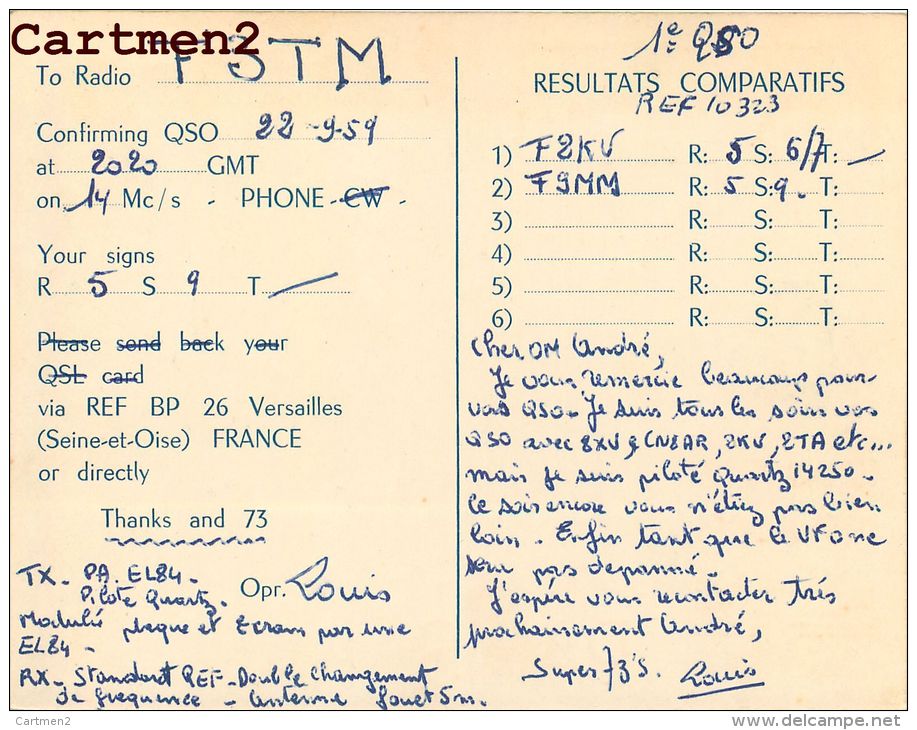 Cartmen2
To Radio F3TM
Confirming QSO 22-9-59
at 2020 GMT
on 14 Mc/s - PHONE - CW -
Your signs
R 5 S 9 T —
Please send back your
QSL card
via REF BP 26 Versailles
(Seine-et-Oise) FRANCE
or directly
Thanks and 73
TX - PA. EL84 -
Pilote Quartz.
Opr. Louis
Modulé plaque et Ecran par une
EL84 -
RX - Standard REF - Double changement
de frequence - Antenne fouet 5m.
1e QSO
RESULTATS COMPARATIFS
REF 10323
1) F8KV R: 5 S: 6/7 T: —
2) F9MM R: 5 S: 9. T:
3) R: S: T:
4) R: S: T:
5) R: S: T:
6) R: S: T:
Cher OM André,
Je vous remercie beaucoup pour
vos QSO - Je suis tous les soirs vos
QSO avec 8XV, CN8AR, 2KV, 8TA etc...
mais je suis piloté quartz 14250 -
le soir encore vous n'étiez pas bien
loin - Enfin tant que le VFO ne
sera pas depanné -
J'espère vous recontacter très
prochainement André,
Super 73's. Louis
Cartmen2
www.delcampe.net